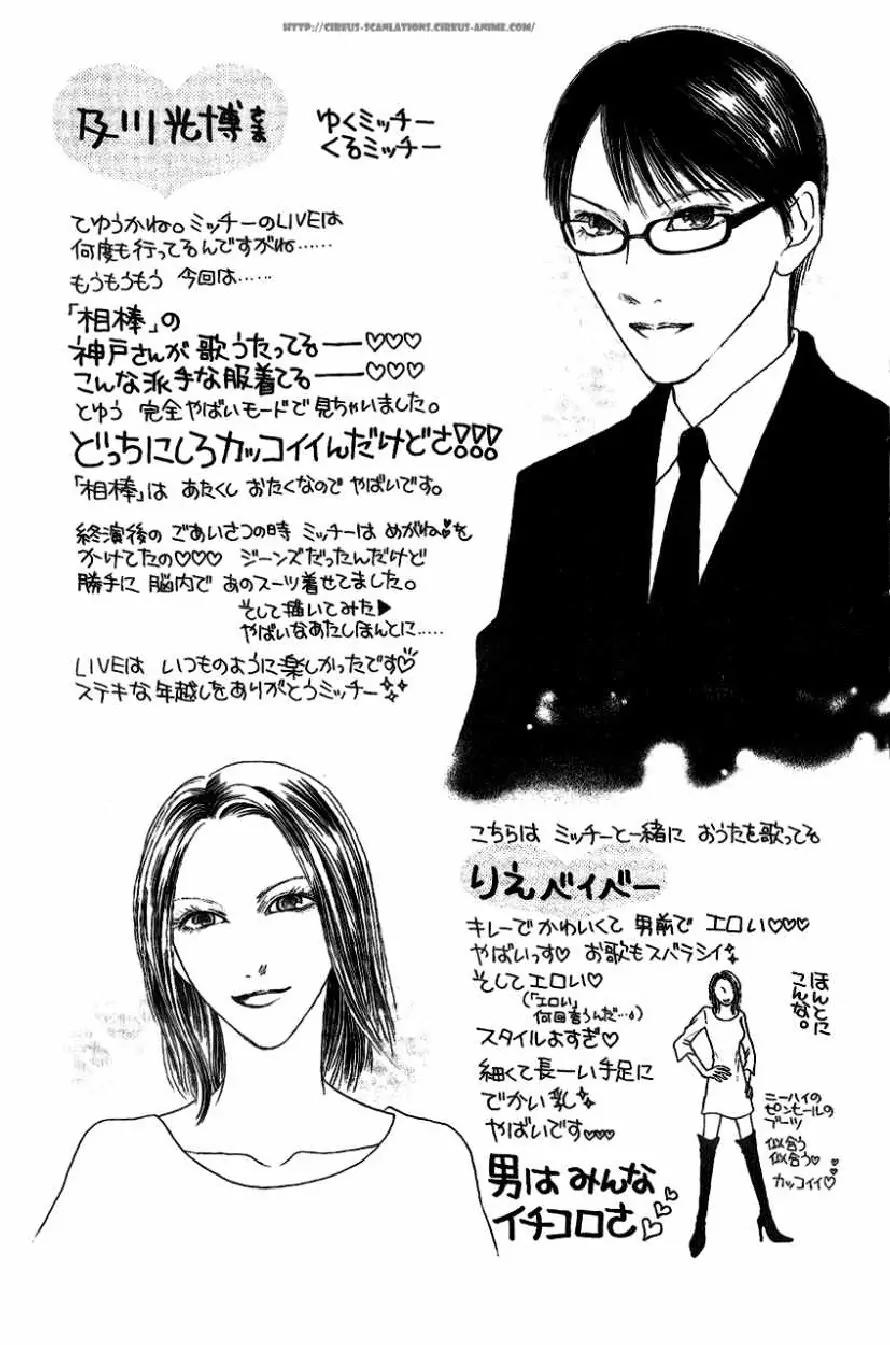 HTTP://CIRKUS-SCANLATIONS.CIRKUS-ANIME.COM/
及川光博さま
ゆくミッチー
くるミッチー
てゆうかね。ミッチーのLIVEは
何度も行ってるんですがね……
もうもうもう 今回は……
「相棒」の
神戸さんが歌うたってるー♡♡♡
こんな派手な服着てるー♡♡♡
とゆう 完全やばいモードで見ちゃいました。
どっちにしろカッコイイんだけどさ!!!
「相棒」は あたくし おたくなので やばいです。
終演後の ごあいさつの時 ミッチーは めがねを
かけてたの♡♡♡ ジーンズだったんだけど
勝手に 脳内で あのスーツ着せてました。
そして描いてみた▶
やばいなあたしほんとに……
LIVEは いつものように楽しかったです♡
ステキな年越しをありがとうミッチー
こちらは ミッチーと一緒に おうたを歌ってる
りえベイベー
キレーで かわいくて 男前で エロい♡♡♡
やばいっす♡ お歌もスバラシイ
そしてエロい♡
(「エロい」
何回言うんだ…。)
スタイルよすぎ♡
細くて長ーい手足に
でかい乳
やばいです♡♡♡
男はみんな
イチコロさ♡♡♡
ほんとに
こんな。
ニーハイの
ピンヒールの
ブーツ
似合う
似合う♡
カッコイイ♡